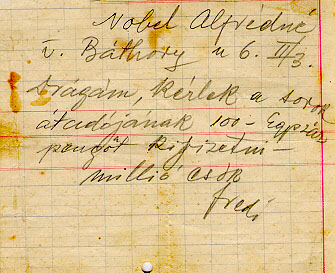 Nobel Alfrédné
V. Báthory u 6. III/3.
Drágám, kérlek a sorok
átadójának 100- Egyszáz
pengőt kifizetni-
millió csók
Fredi